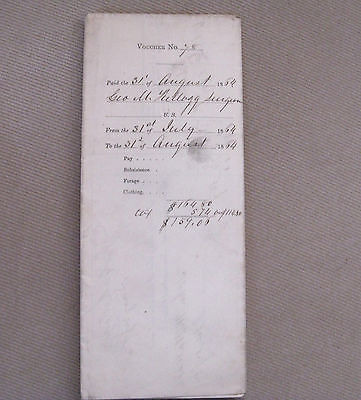 VOUCHER No. 78
Paid the 31st of August 1864
Geo M. Kellogg Surgeon
U. S.
From the 31st of July 1864
To the 31st of August 1864
Pay . . . .
Subsistence . .
Forage . . .
Clothing. . . .
$164.80
5.74
$159.06